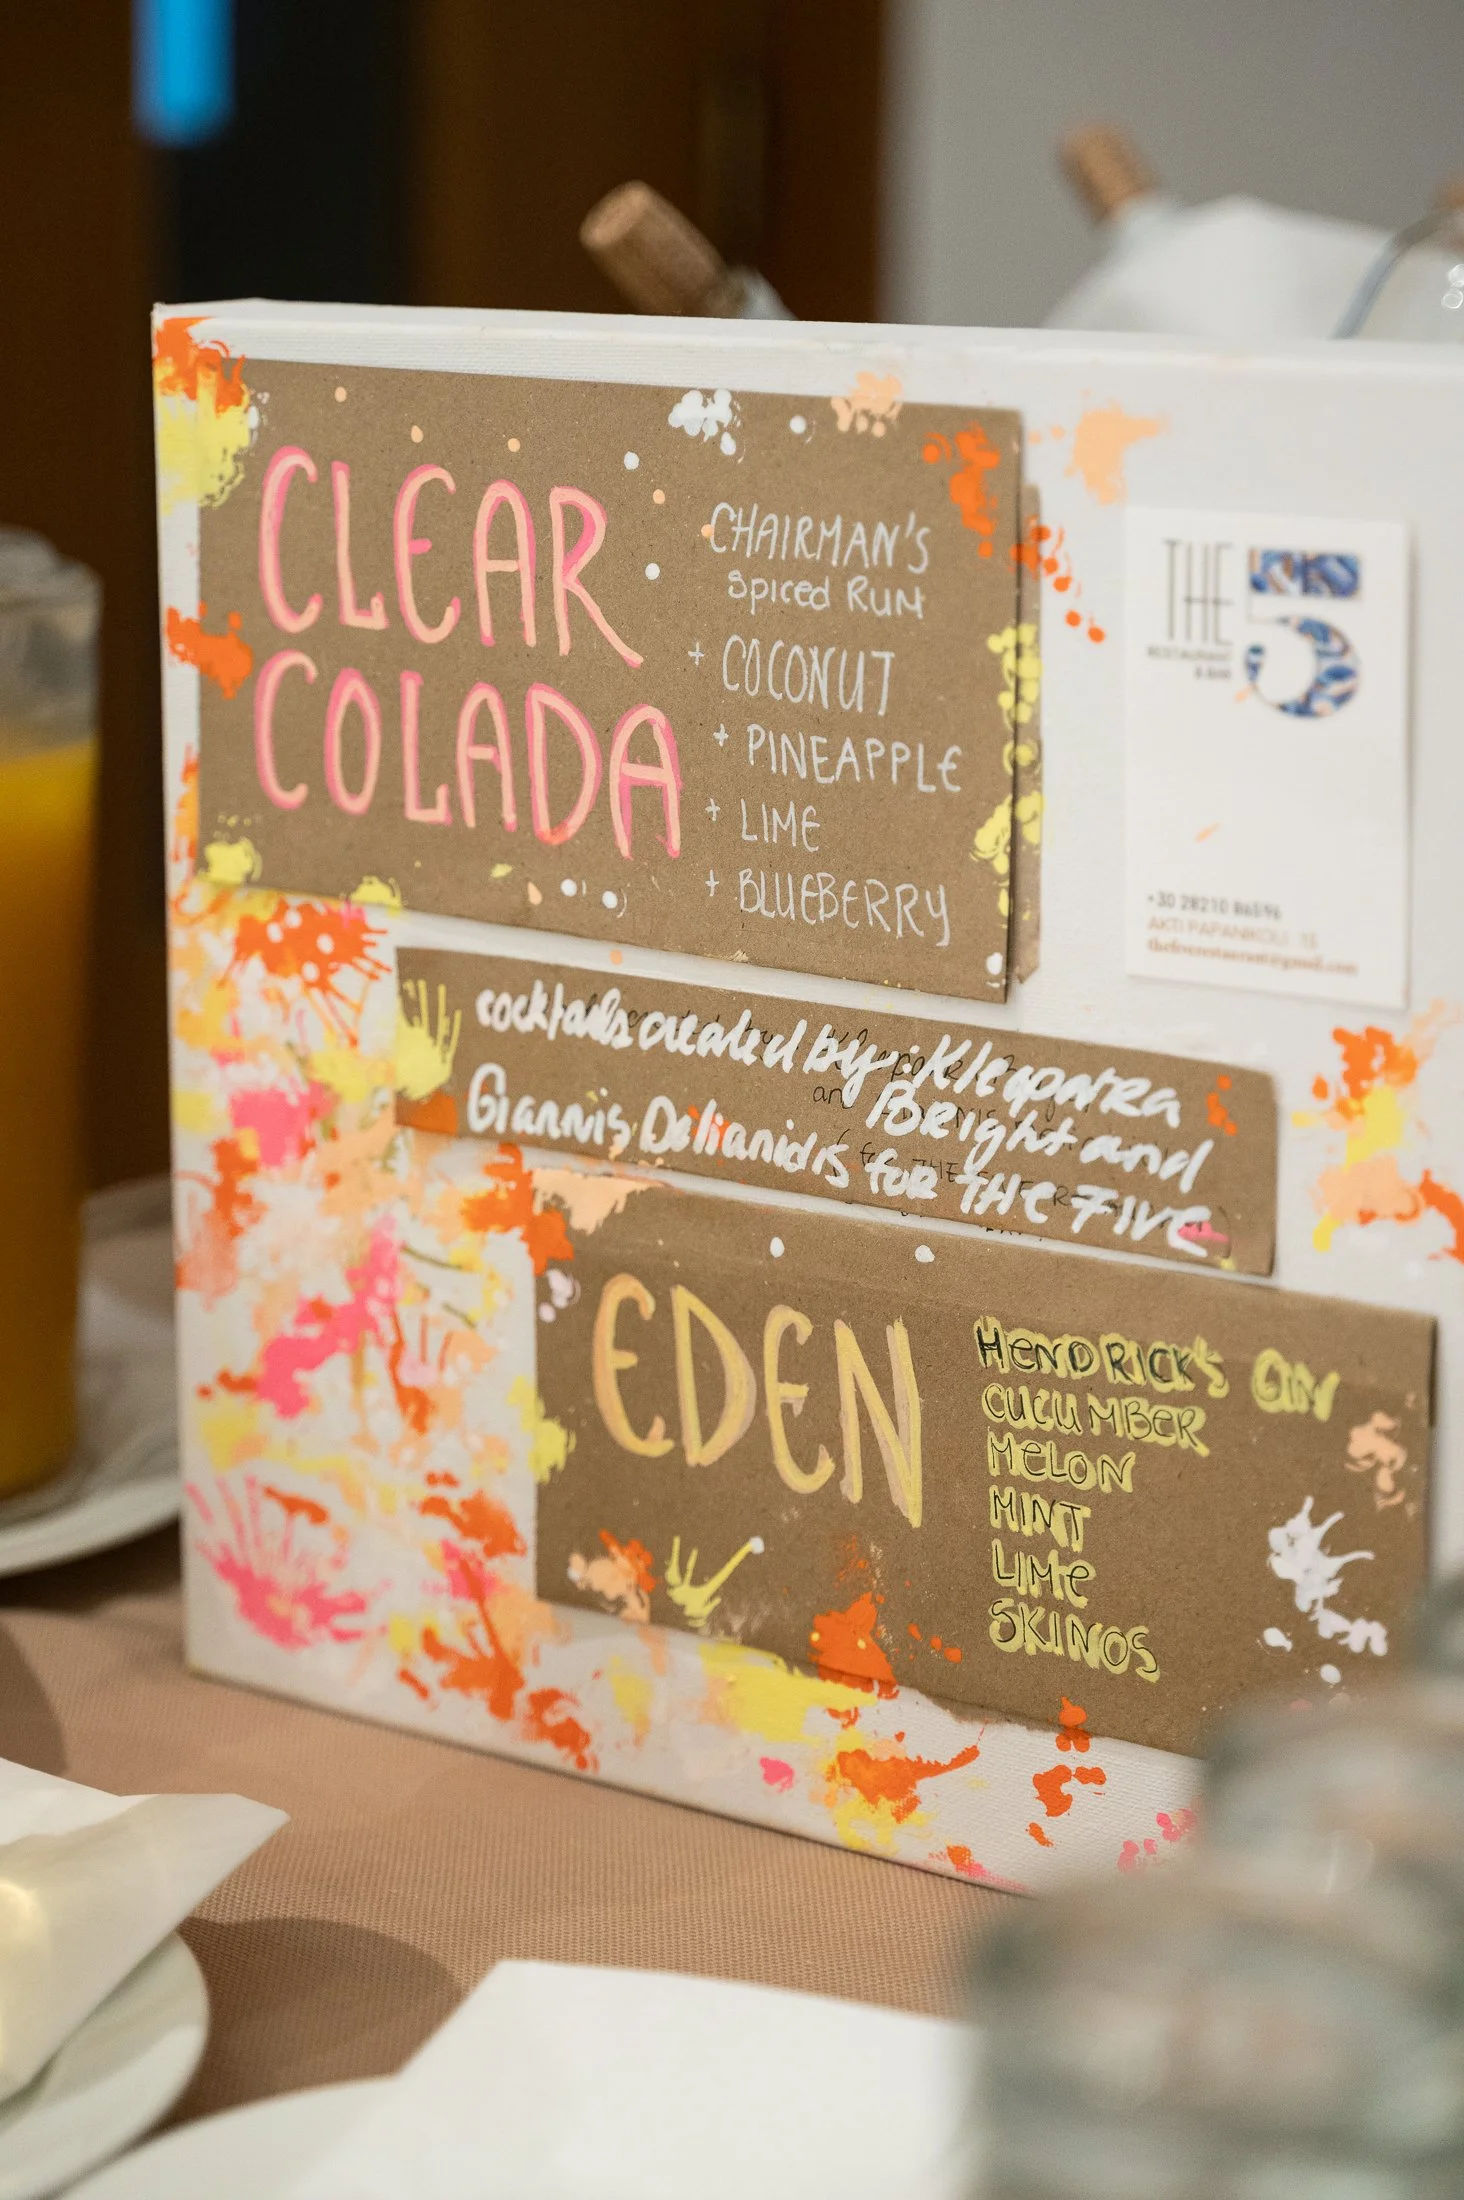 CLEAR
COLADA
CHAIRMAN'S
Spiced RUM
+ COCONUT
+ PINEAPPLE
+ LIME
+ BLUEBERRY
THE 5
RESTAURANT
& BAR
+30 28210 86596
AKTI PAPANIKOLI 15
thefiverestaurant@gmail.com
cocktails created by Kleopatra
Bright and
Giannis Delianidis for THE FIVE
EDEN
HENDRICK'S GIN
CUCUMBER
MELON
MINT
LIME
SKINOS